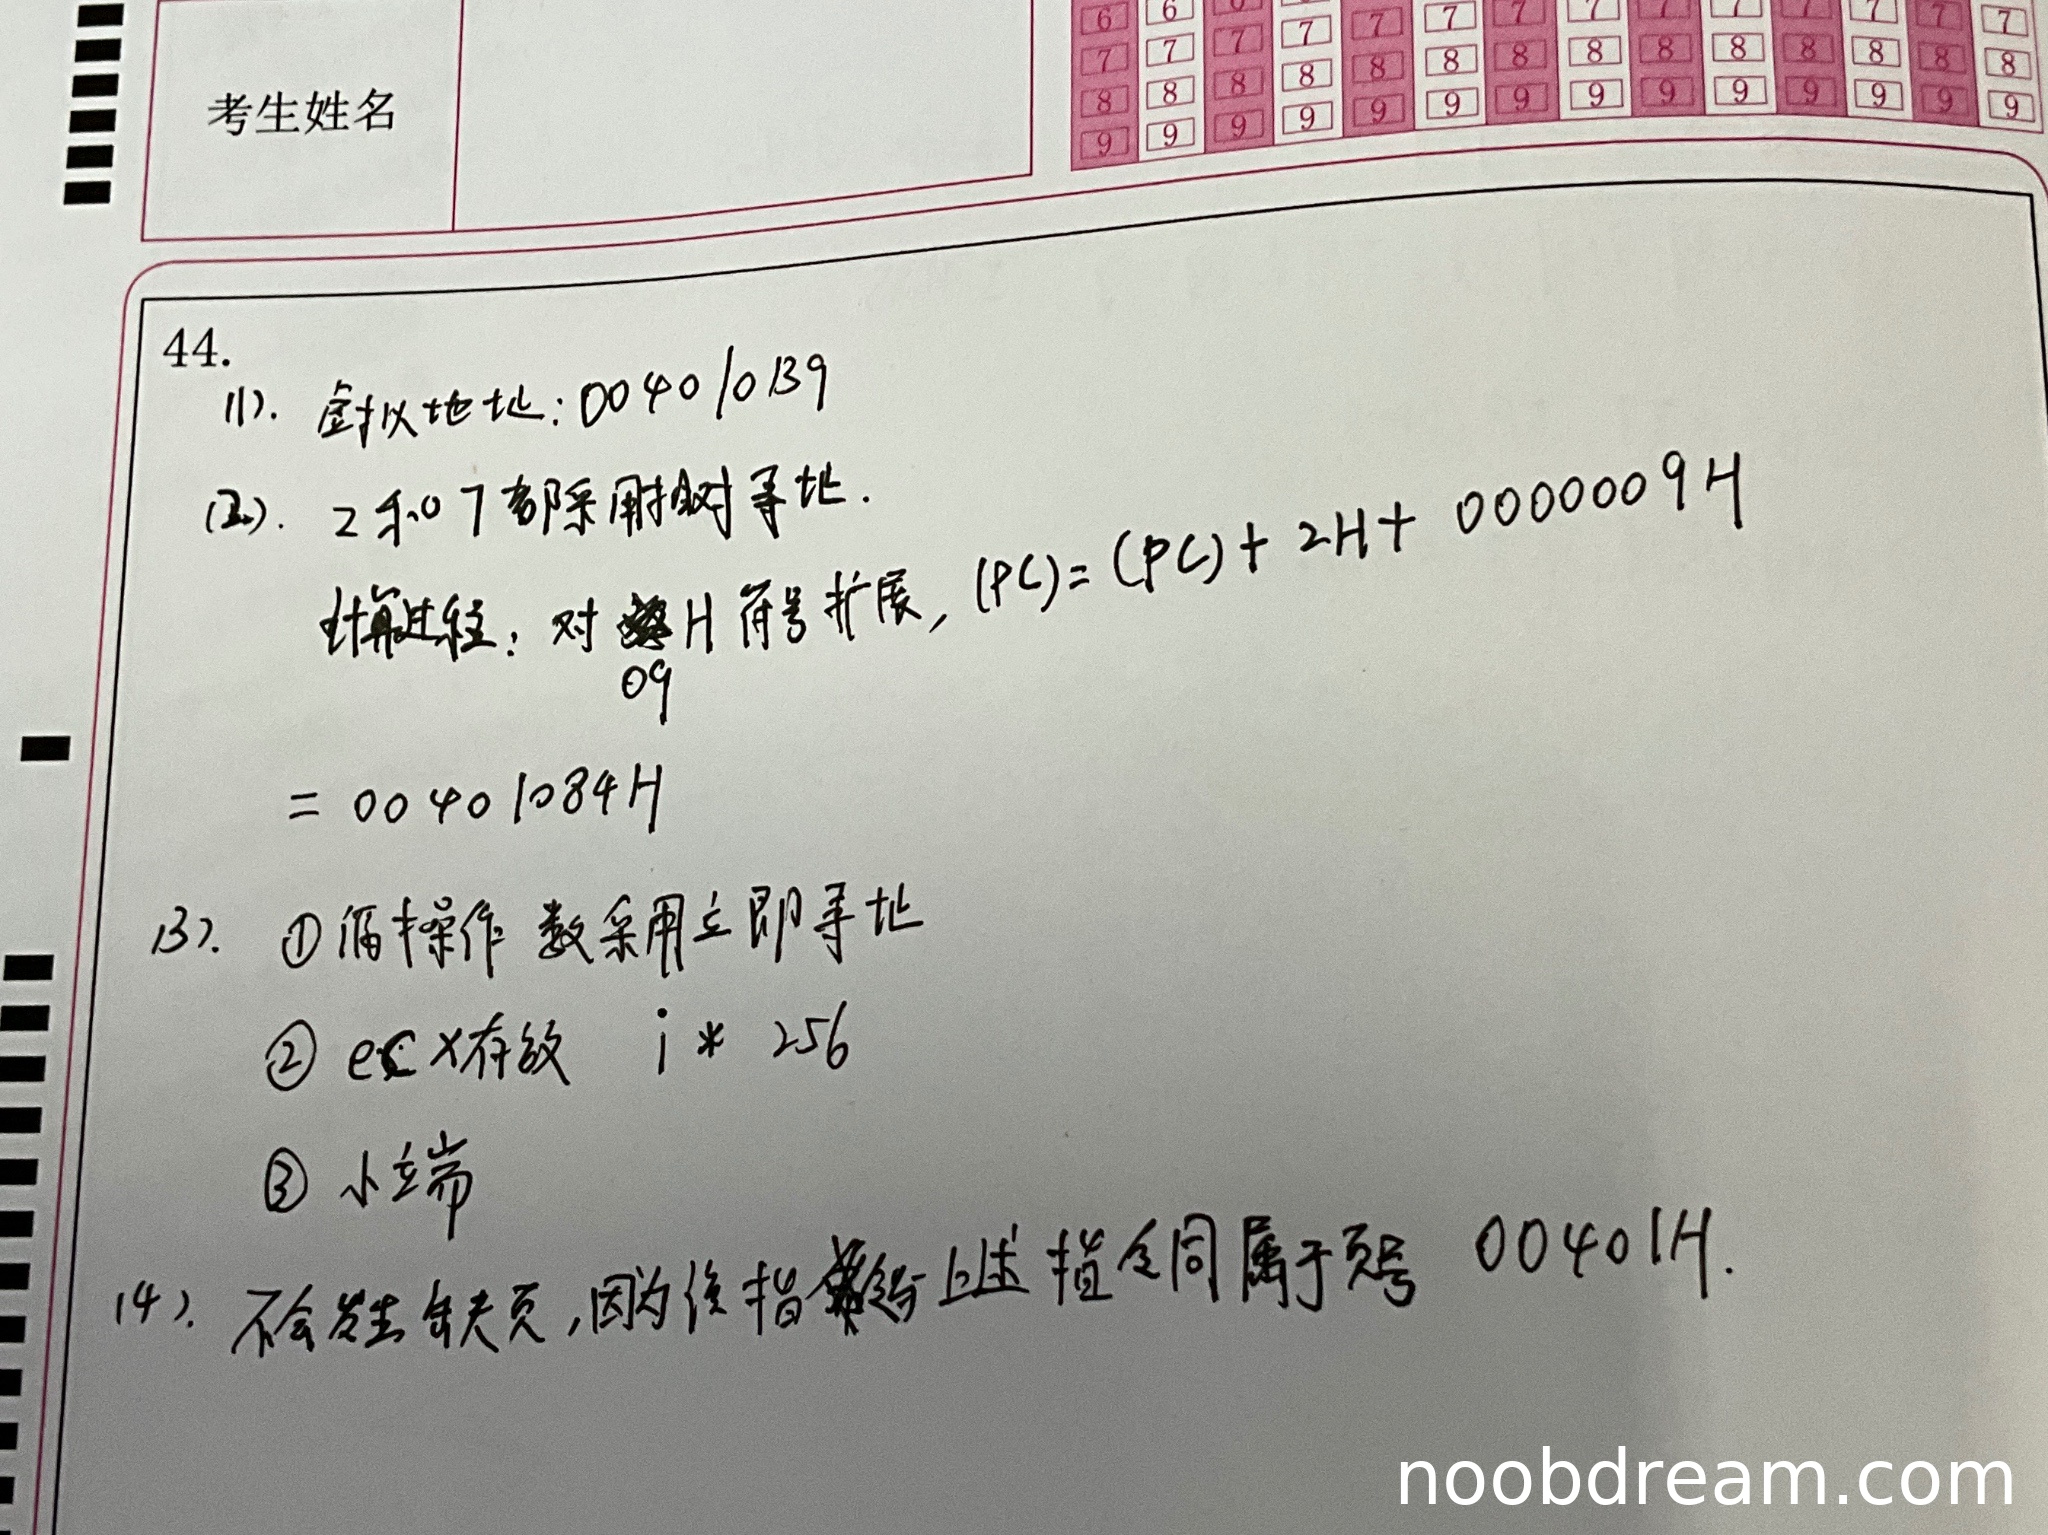 6 6 6 7 7 7 7 7 7 7 7
7 7 7 7 7 8 8 8 8 8 8 8 8 8
8 8 8 8 8 9 9 9 9 9 9 9 9 9
9 9 9 9 9
考生姓名
44.
(1). 虚拟地址: 0040 10B9
(2). 2和7都采用相对寻址.
计算过程: 对 H 符号扩展, (PC) = (PC) + 2H + 00000009H
09
= 00401084H
(3). ① 源操作数采用立即寻址
② ecx存放 i * 256
③ 小端
(4). 不会发生缺页, 因为该指令与上述指令同属于页号 00401H.
noobdream.com